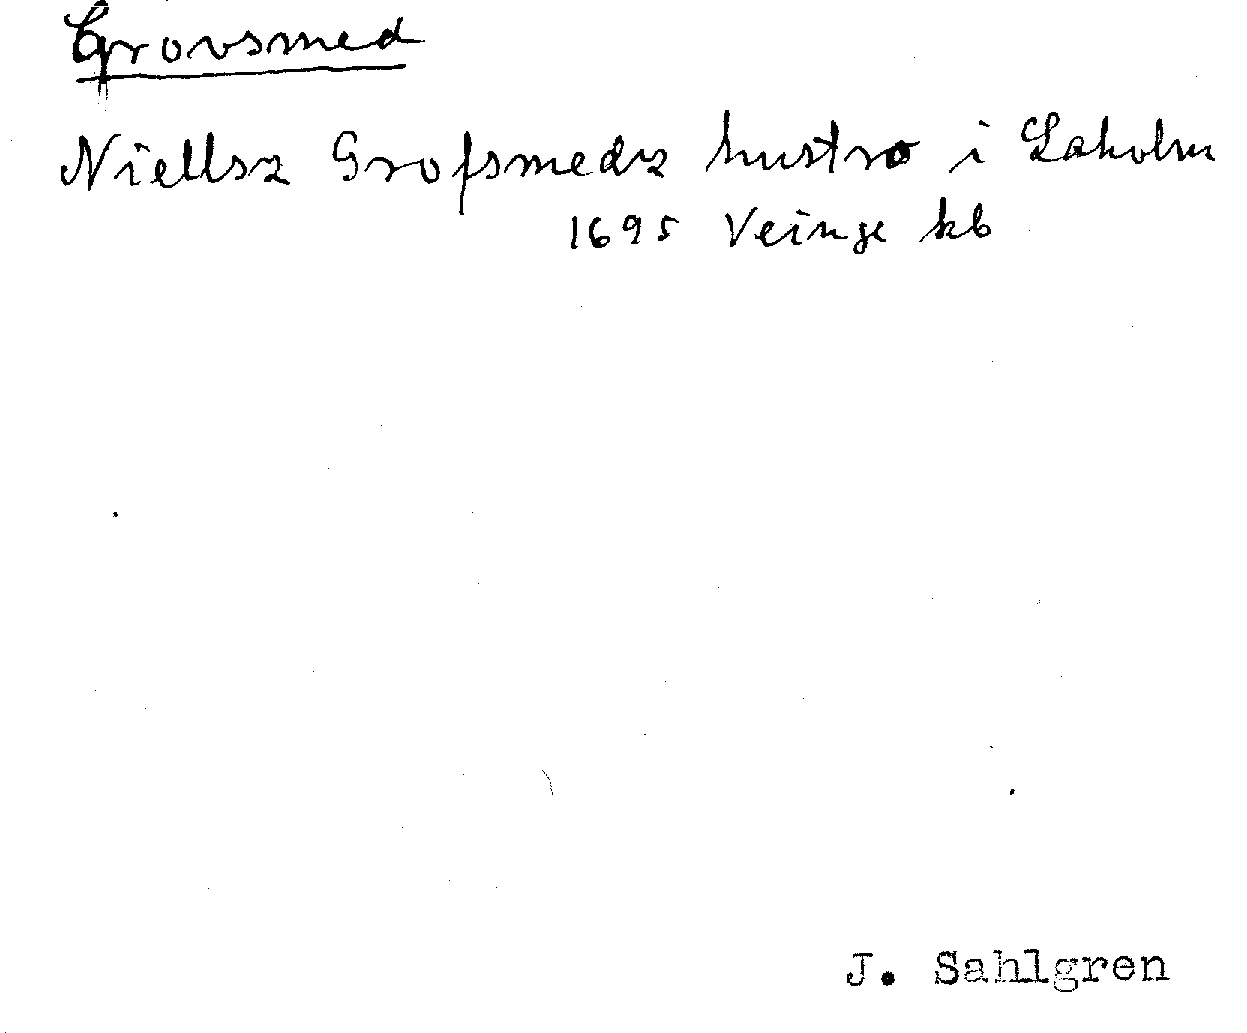 Grovsmed
Niellsz Grofsmedz hustro i Laholm
1695 Veinge kb
J. Sahlgren